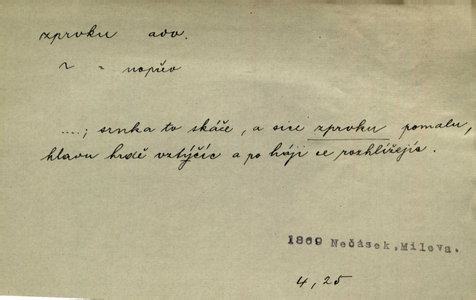 zprvku adv.
~ = nopřv
....; srnka to skáče, a sice zprvku pomalu,
hlavu hrdě vztýčíc a po háji se rozhlížejíc.
1869 Nečásek, Mileva.
4, 25